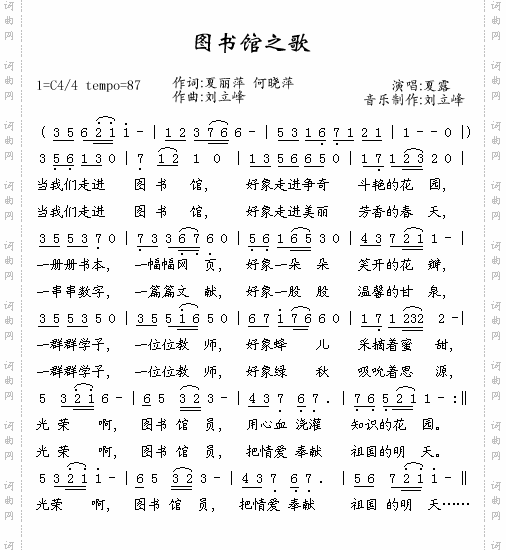 图书馆之歌
1=C4/4 tempo=87 作词:夏丽萍 何晓萍 演唱:夏露
作曲:刘立峰 音乐制作:刘立峰
( 3 5 6 2 1 1 - | 1 2 3 7 6 6 - | 5 3 1 6 7 1 2 1 | 1 - - 0 |)
3 5 6 1 3 0 | 7 1 2 1 0 | 1 3 5 6 6 5 0 | 1 7 1 2 3 2 0 |
当我们走进 图 书 馆, 好象走进争奇 斗艳的花 园,
当我们走进 图 书 馆, 好象走进美丽 芳香的春 天,
3 5 5 3 7 0 | 7 3 3 6 7 6 0 | 5 6 1 6 5 3 0 | 4 3 7 2 1 1 |
一册册书本, 一幅幅网 页, 好象一朵 朵 笑开的花 瓣,
一串串数字, 一篇篇文 献, 好象一股 股 温馨的甘 泉,
3 5 5 3 5 0 | 3 5 5 1 6 5 0 | 6 7 1 7 6 6 0 | 1 7 1 232 2 - |
一群群学子, 一位位教 师, 好象蜂 儿 采摘着蜜 甜,
一群群学子, 一位位教 师, 好象绿 秋 吸吮着思 源,
5 3 2 2 1 6 - | 6 5 3 2 2 3 - | 4 3 6 7 . | 7 6 5 2 1 1 - :||
光 荣 啊, 图书 馆 员, 用心血 浇灌 知识的花 园。
光 荣 啊, 图书 馆 员, 把情爱 奉献 祖国的明 天。
5 3 2 1 2 1 1 - | 6 5 3 2 2 3 - | 4 3 7 6 7 . | 5 3 2 1 1 - |
光荣 啊, 图书 馆 员, 把情爱 奉献 祖国 的明 天……
词曲网
词曲网
词曲网
词曲网
词曲网
词曲网
词曲网
词曲网
词曲网
词曲网